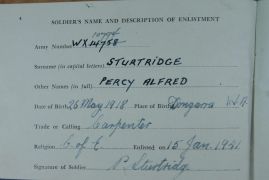 SOLDIER'S NAME AND DESCRIPTION ON ENLISTMENT
Army Number WX14758
Surname (in capital letters) STURTRIDGE
Other Names (in full) PERCY ALFRED
Date of Birth 26 May 1918 Place of Birth Dongarra W.A.
Trade or Calling Carpenter
Religion C. of E. Enlisted on 15 Jan. 1941
Signature of Soldier P. Sturtridge